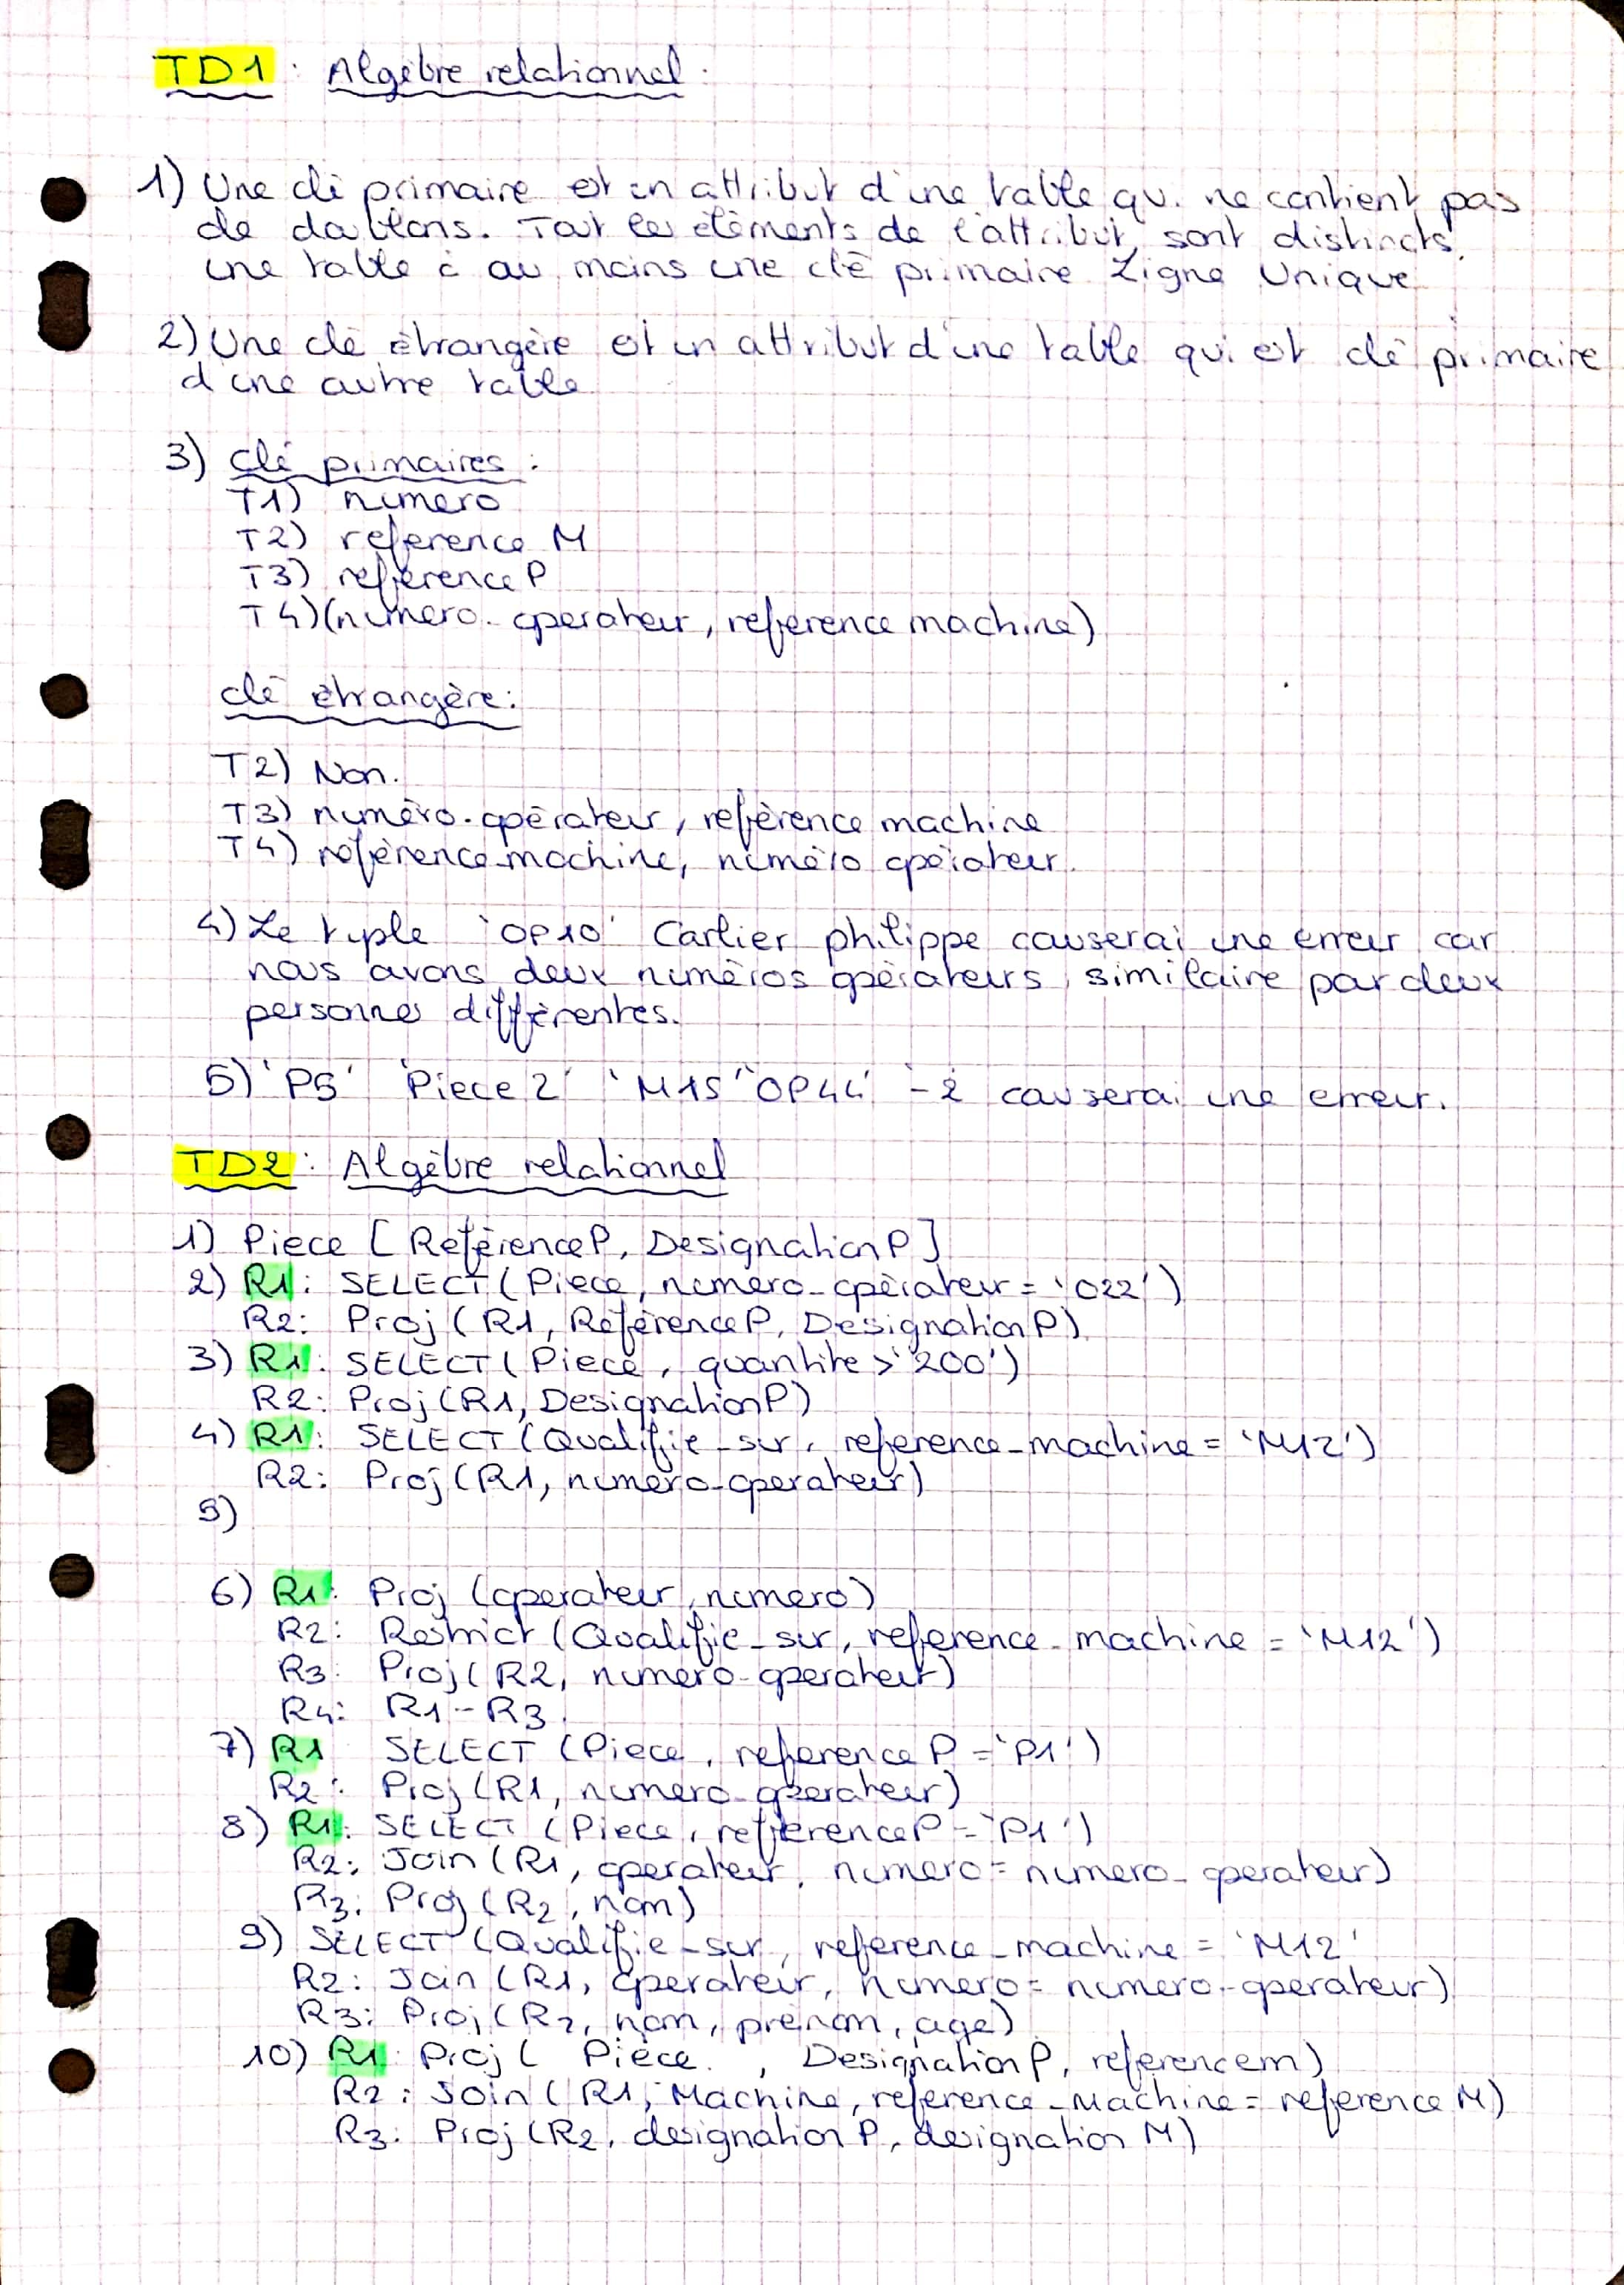 TD1 : Algèbre relationnel.
1) Une clé primaire est un attribut d'une table qui ne contient pas
de doublons. Tout les éléments de l'attribut sont distincts.
une table à au moins une clé primaire Ligne Unique
2) Une clé étrangère est un attribut d'une table qui est clé primaire
d'une autre table
3) Clé primaires :
T1) numero
T2) reference M
T3) reférence P
T4) (numero_operateur, reference machine)
clé étrangère :
T2) Non.
T3) numéro_opérateur, reférence machine
T4) référence_machine, numéro opérateur.
4) Le tuple 'OP10' Carlier philippe causerai une erreur car
nous avons deux numéros opérateurs similaire par deux
personnes différentes.
5) 'P5' 'Piece 2' 'M15' 'OP44' -2 causerai une erreur.
TD2 : Algèbre relationnel
1) Piece [RéférenceP, DesignationP]
2) R1 : SELECT (Piece, numero_opérateur = '022')
R2 : Proj (R1, RéférenceP, DesignationP)
3) R1 : SELECT (Piece, quantite > '200')
R2 : Proj (R1, DesignationP)
4) R1 : SELECT (Qualifie_sur, reference_machine = 'M12')
R2 : Proj (R1, numero_operateur)
5)
6) R1 : Proj (operateur, numero)
R2 : Restrict (Qualifie_sur, reference_machine = 'M12')
R3 : Proj (R2, numero_operateur)
R4 : R1 - R3
7) R1 SELECT (Piece, reference P = 'P1')
R2 : Proj (R1, numero_operateur)
8) R1 : SELECT (Piece, referenceP = 'P1')
R2 : Join (R1, operateur, numero = numero_operateur)
R3 : Proj (R2, nom)
9) SELECT (Qualifie_sur, reference_machine = 'M12'
R2 : Join (R1, operateur, numero = numero_operateur)
R3 : Proj (R2, nom, prénom, age)
10) R1 : Proj ( Pièce , DesignationP, referencem)
R2 : Join (R1, Machine, reference_Machine = reference M)
R3 : Proj (R2, designation P, designation M)